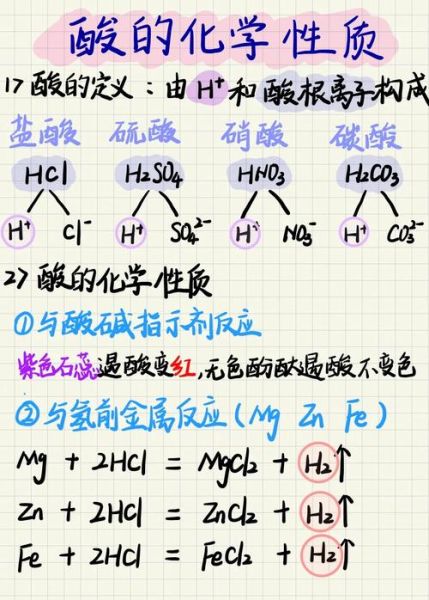 酸的化学性质
1>酸的定义：由H⁺和酸根离子构成
盐酸 硫酸 硝酸 碳酸
HCl H₂SO₄ HNO₃ H₂CO₃
H⁺ Cl⁻ H⁺ SO₄²⁻ H⁺ NO₃⁻ H⁺ CO₃²⁻
2>酸的化学性质
①与酸碱指示剂反应
紫色石蕊遇酸变红,无色酚酞遇酸不变色
②与氢前金属反应(Mg Zn Fe)
Mg + 2HCl = MgCl₂ + H₂↑
Zn + 2HCl = ZnCl₂ + H₂↑
Fe + 2HCl = FeCl₂ + H₂↑